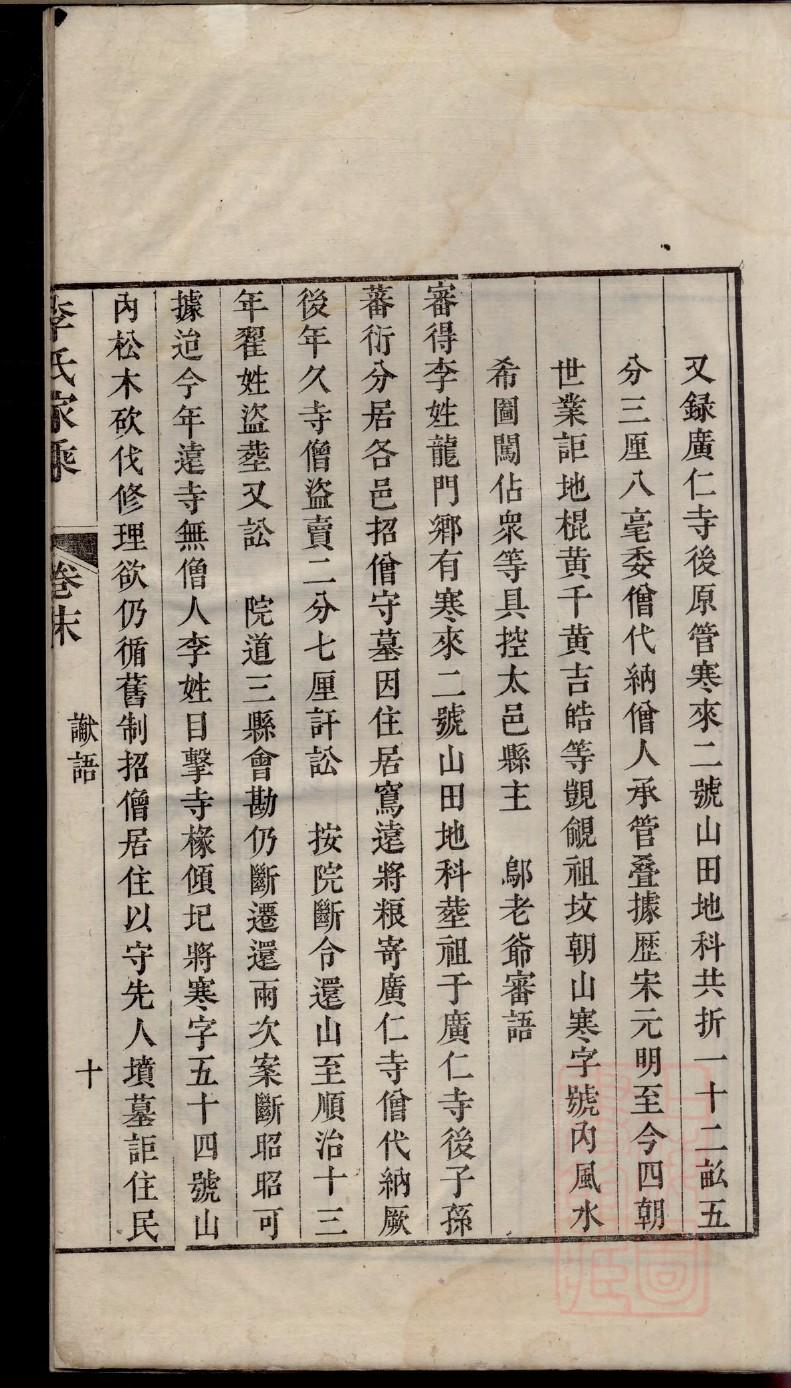 又録廣仁寺後原管寒來二號山田地科共折一十二畆五
分三厘八毫委僧代納僧人承管叠據歴宋元明至今四朝
世業詎地棍黃千黃吉皓等覬覦祖坟朝山寒字號內風水
希圖闖佔衆等具控太邑縣主　鄔老爺審語
審得李姓龍門鄉有寒來二號山田地科塟祖于廣仁寺後子孫
蕃衍分居各邑招僧守墓因住居寫遠將粮寄廣仁寺僧代納厥
後年久寺僧盜賣二分七厘訐訟　按院斷令還山至順治十三
年翟姓盜塟又訟　院道三縣會勘仍斷遷還兩次案斷昭昭可
據迨今年遠寺無僧人李姓目擊寺椽傾圮將寒字五十四號山
內松木砍伐修理欲仍循舊制招僧居住以守先人墳墓詎住民
李氏家乘　卷末　讞語　十